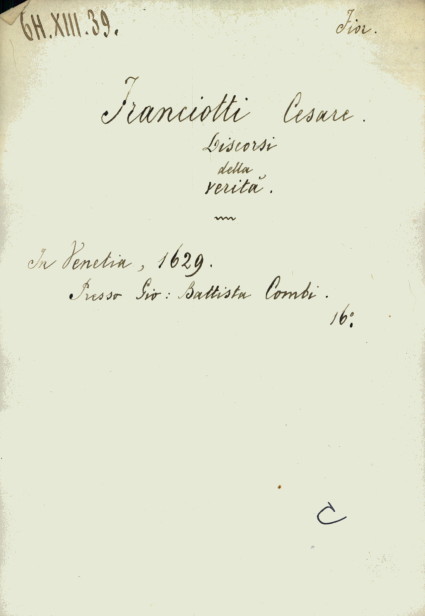 6H.XIII.39.
Fior.
Franciotti Cesare.
Discorsi
della
verità.
In Venetia, 1629.
Presso Gio: Battista Combi.
16:
C